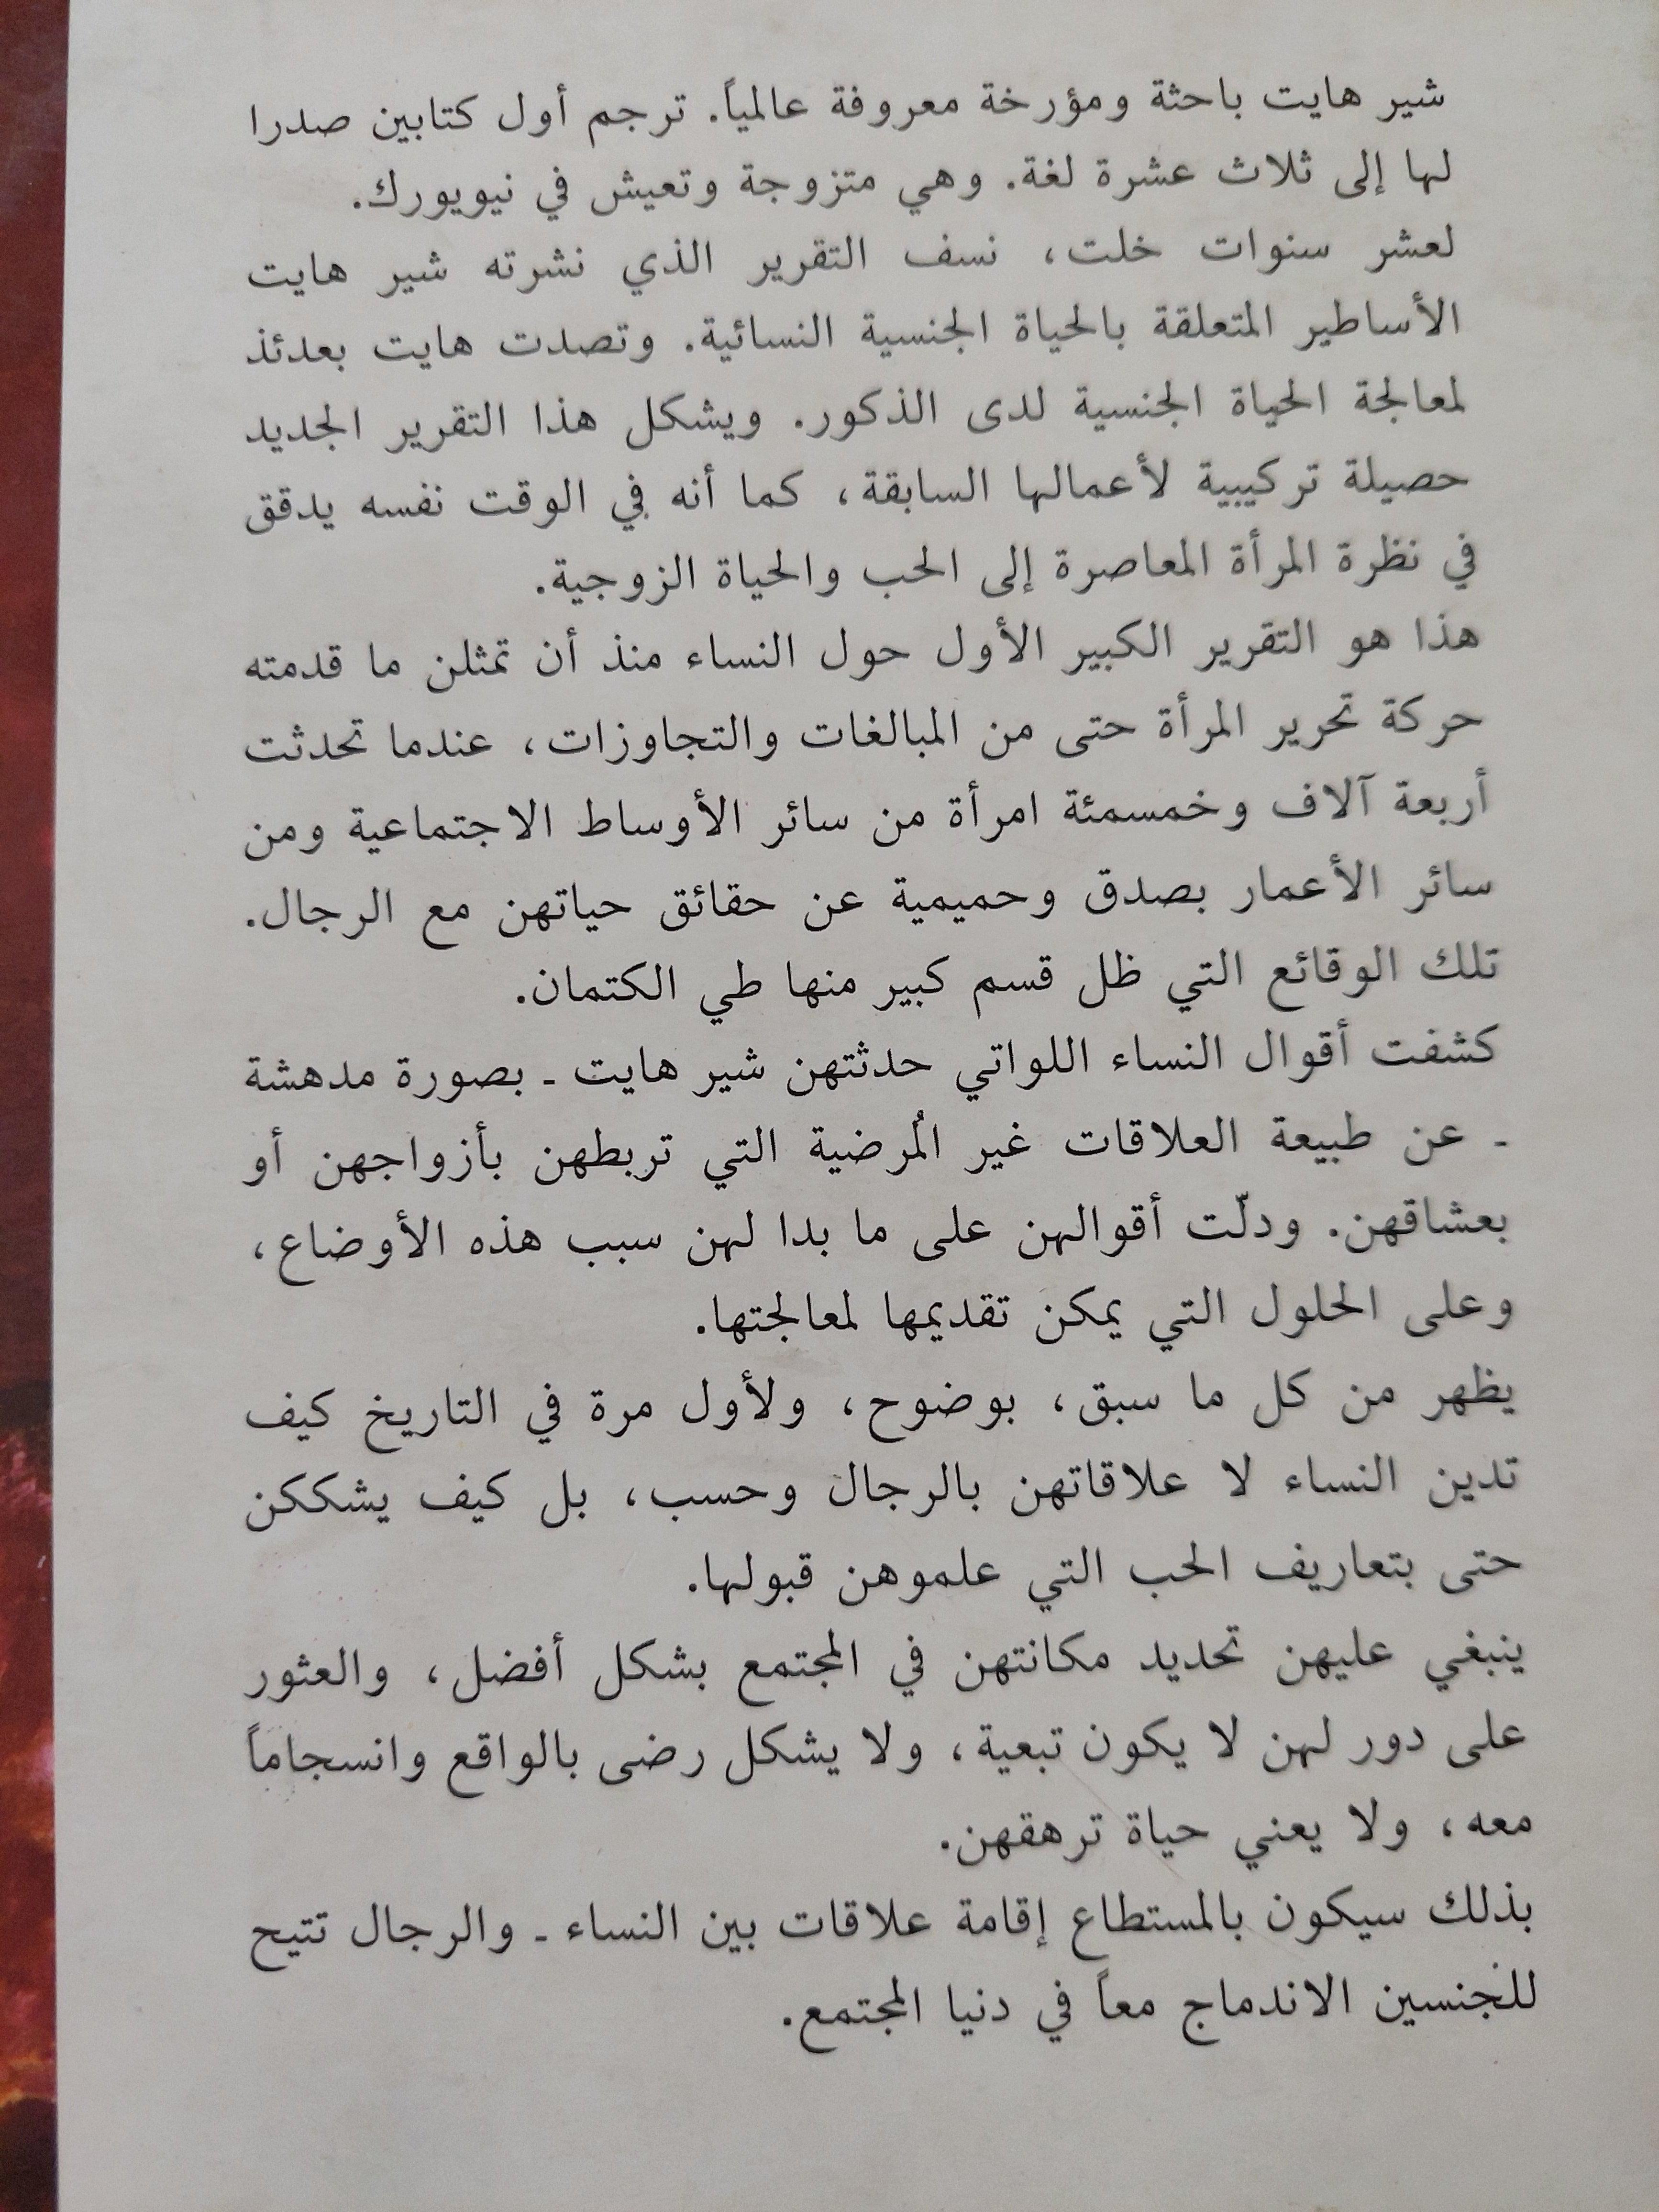 شير هايت باحثة ومؤرخة معروفة عالمياً. ترجم أول كتابين صدرا
لها إلى ثلاث عشرة لغة. وهي متزوجة وتعيش في نيويورك.
لعشر سنوات خلت، نسف التقرير الذي نشرته شير هايت
الأساطير المتعلقة بالحياة الجنسية النسائية. وتصدت هايت بعدئذ
لمعالجة الحياة الجنسية لدى الذكور. ويشكل هذا التقرير الجديد
حصيلة تركيبية لأعمالها السابقة، كما أنه في الوقت نفسه يدقق
في نظرة المرأة المعاصرة إلى الحب والحياة الزوجية.
هذا هو التقرير الكبير الأول حول النساء منذ أن تمثلن ما قدمته
حركة تحرير المرأة حتى من المبالغات والتجاوزات، عندما تحدثت
أربعة آلاف وخمسمئة امرأة من سائر الأوساط الاجتماعية ومن
سائر الأعمار بصدق وحميمية عن حقائق حياتهن مع الرجال.
تلك الوقائع التي ظل قسم كبير منها طي الكتمان.
كشفت أقوال النساء اللواتي حدثتهن شير هايت ـ بصورة مدهشة
ـ عن طبيعة العلاقات غير المُرضية التي تربطهن بأزواجهن أو
بعشاقهن. ودلّت أقوالهن على ما بدا لهن سبب هذه الأوضاع،
وعلى الحلول التي يمكن تقديمها لمعالجتها.
يظهر من كل ما سبق، بوضوح، ولأول مرة في التاريخ كيف
تدين النساء لا علاقاتهن بالرجال وحسب، بل كيف يشككن
حتى بتعاريف الحب التي علموهن قبولها.
ينبغي عليهن تحديد مكانتهن في المجتمع بشكل أفضل، والعثور
على دور لهن لا يكون تبعية، ولا يشكل رضى بالواقع وانسجاماً
معه، ولا يعني حياة ترهقهن.
بذلك سيكون بالمستطاع إقامة علاقات بين النساء ـ والرجال تتيح
للجنسين الاندماج معاً في دنيا المجتمع.